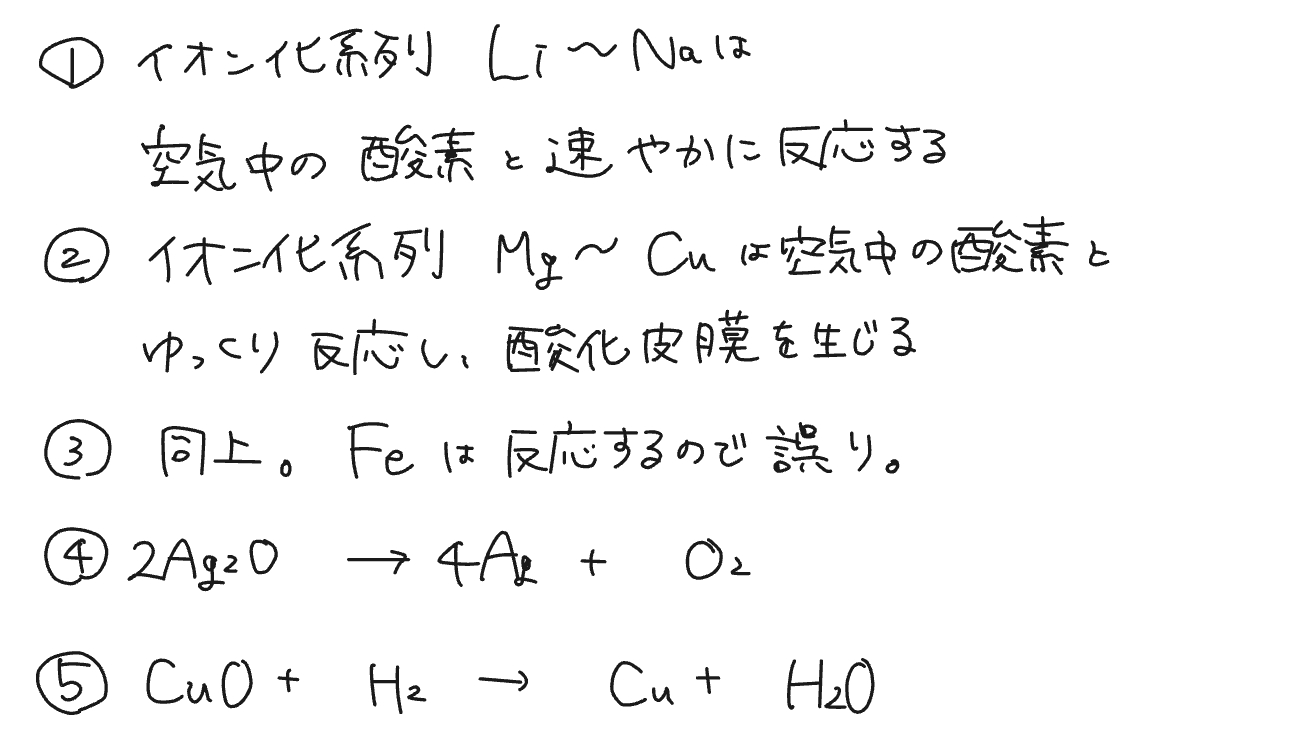 ① イオン化系列 Li～Naは
空気中の酸素と速やかに反応する
② イオン化系列 Mg～Cuは空気中の酸素と
ゆっくり反応し、酸化皮膜を生じる
③ 同上。Feは反応するので誤り。
④ 2Ag₂O → 4Ag + O₂
⑤ CuO + H₂ → Cu + H₂O